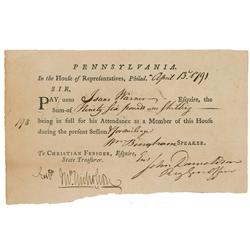 PENNSYLVANIA.
In the House of Representatives, Philad.ᵃ April 13ᵗʰ 1791
SIR,
PAY unto Isaac Warner Esquire, the
Sum of Ninety six pounds
being in full for his Attendance as a Member of this
during the present Session
Wm Bingham SPEAKER.
To CHRISTIAN FEBIGER, Esquire,
State Treasurer.
John Donaldson
Jno Nicholson